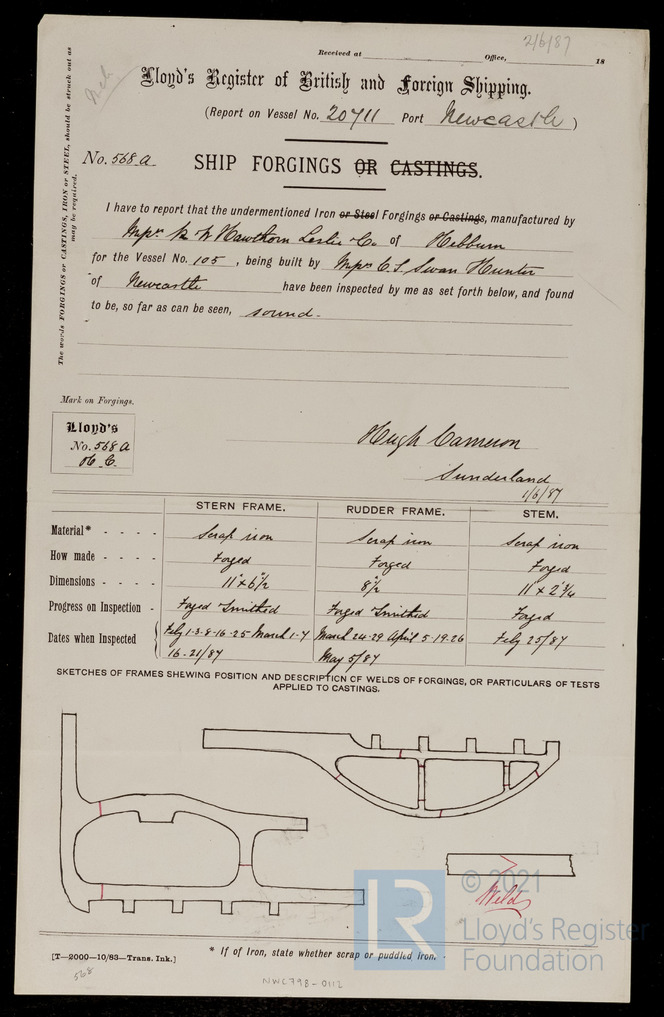 2/6/87
Received at Office, 18
Lloyd's Register of British and Foreign Shipping.
(Report on Vessel No. 20711 Port Newcastle)
The words FORGINGS or CASTINGS, IRON or STEEL, should be struck out as
may be required.
No. 568.a.
SHIP FORGINGS OR CASTINGS.
I have to report that the undermentioned Iron or Steel Forgings or Castings, manufactured by
Hawthorn Leslie & Co. of Hebburn
for the Vessel No. 105, being built by C.S. Swan Hunter
of Newcastle have been inspected by me as set forth below, and found
to be, so far as can be seen, sound.
Mark on Forgings.
Lloyd's
No. 568 a
Hugh Cameron
Sunderland
1/6/87
STERN FRAME. RUDDER FRAME. STEM.
Material* - - - - Scrap iron Scrap iron Scrap iron
How made - - - - Forged Forged Forged
Dimensions - - - - 11" x 6 1/2" 8 1/2" 11" x 2 3/4"
Progress on Inspection - Forged & Smithed Forged & Smithed Forged
Dates when Inspected Feby 1-3-8-16-25 March 1-7 March 24-29 April 5-19-26 Feby 25/87
16-21/87 May 5/87
SKETCHES OF FRAMES SHEWING POSITION AND DESCRIPTION OF WELDS OF FORGINGS, OR PARTICULARS OF TESTS
APPLIED TO CASTINGS.
Weld
© 2021
LR
Lloyd's Register
Foundation
* If of Iron, state whether scrap or puddled iron.
[T—2000—10/83—Trans. Ink.]
568
NWC798-0112